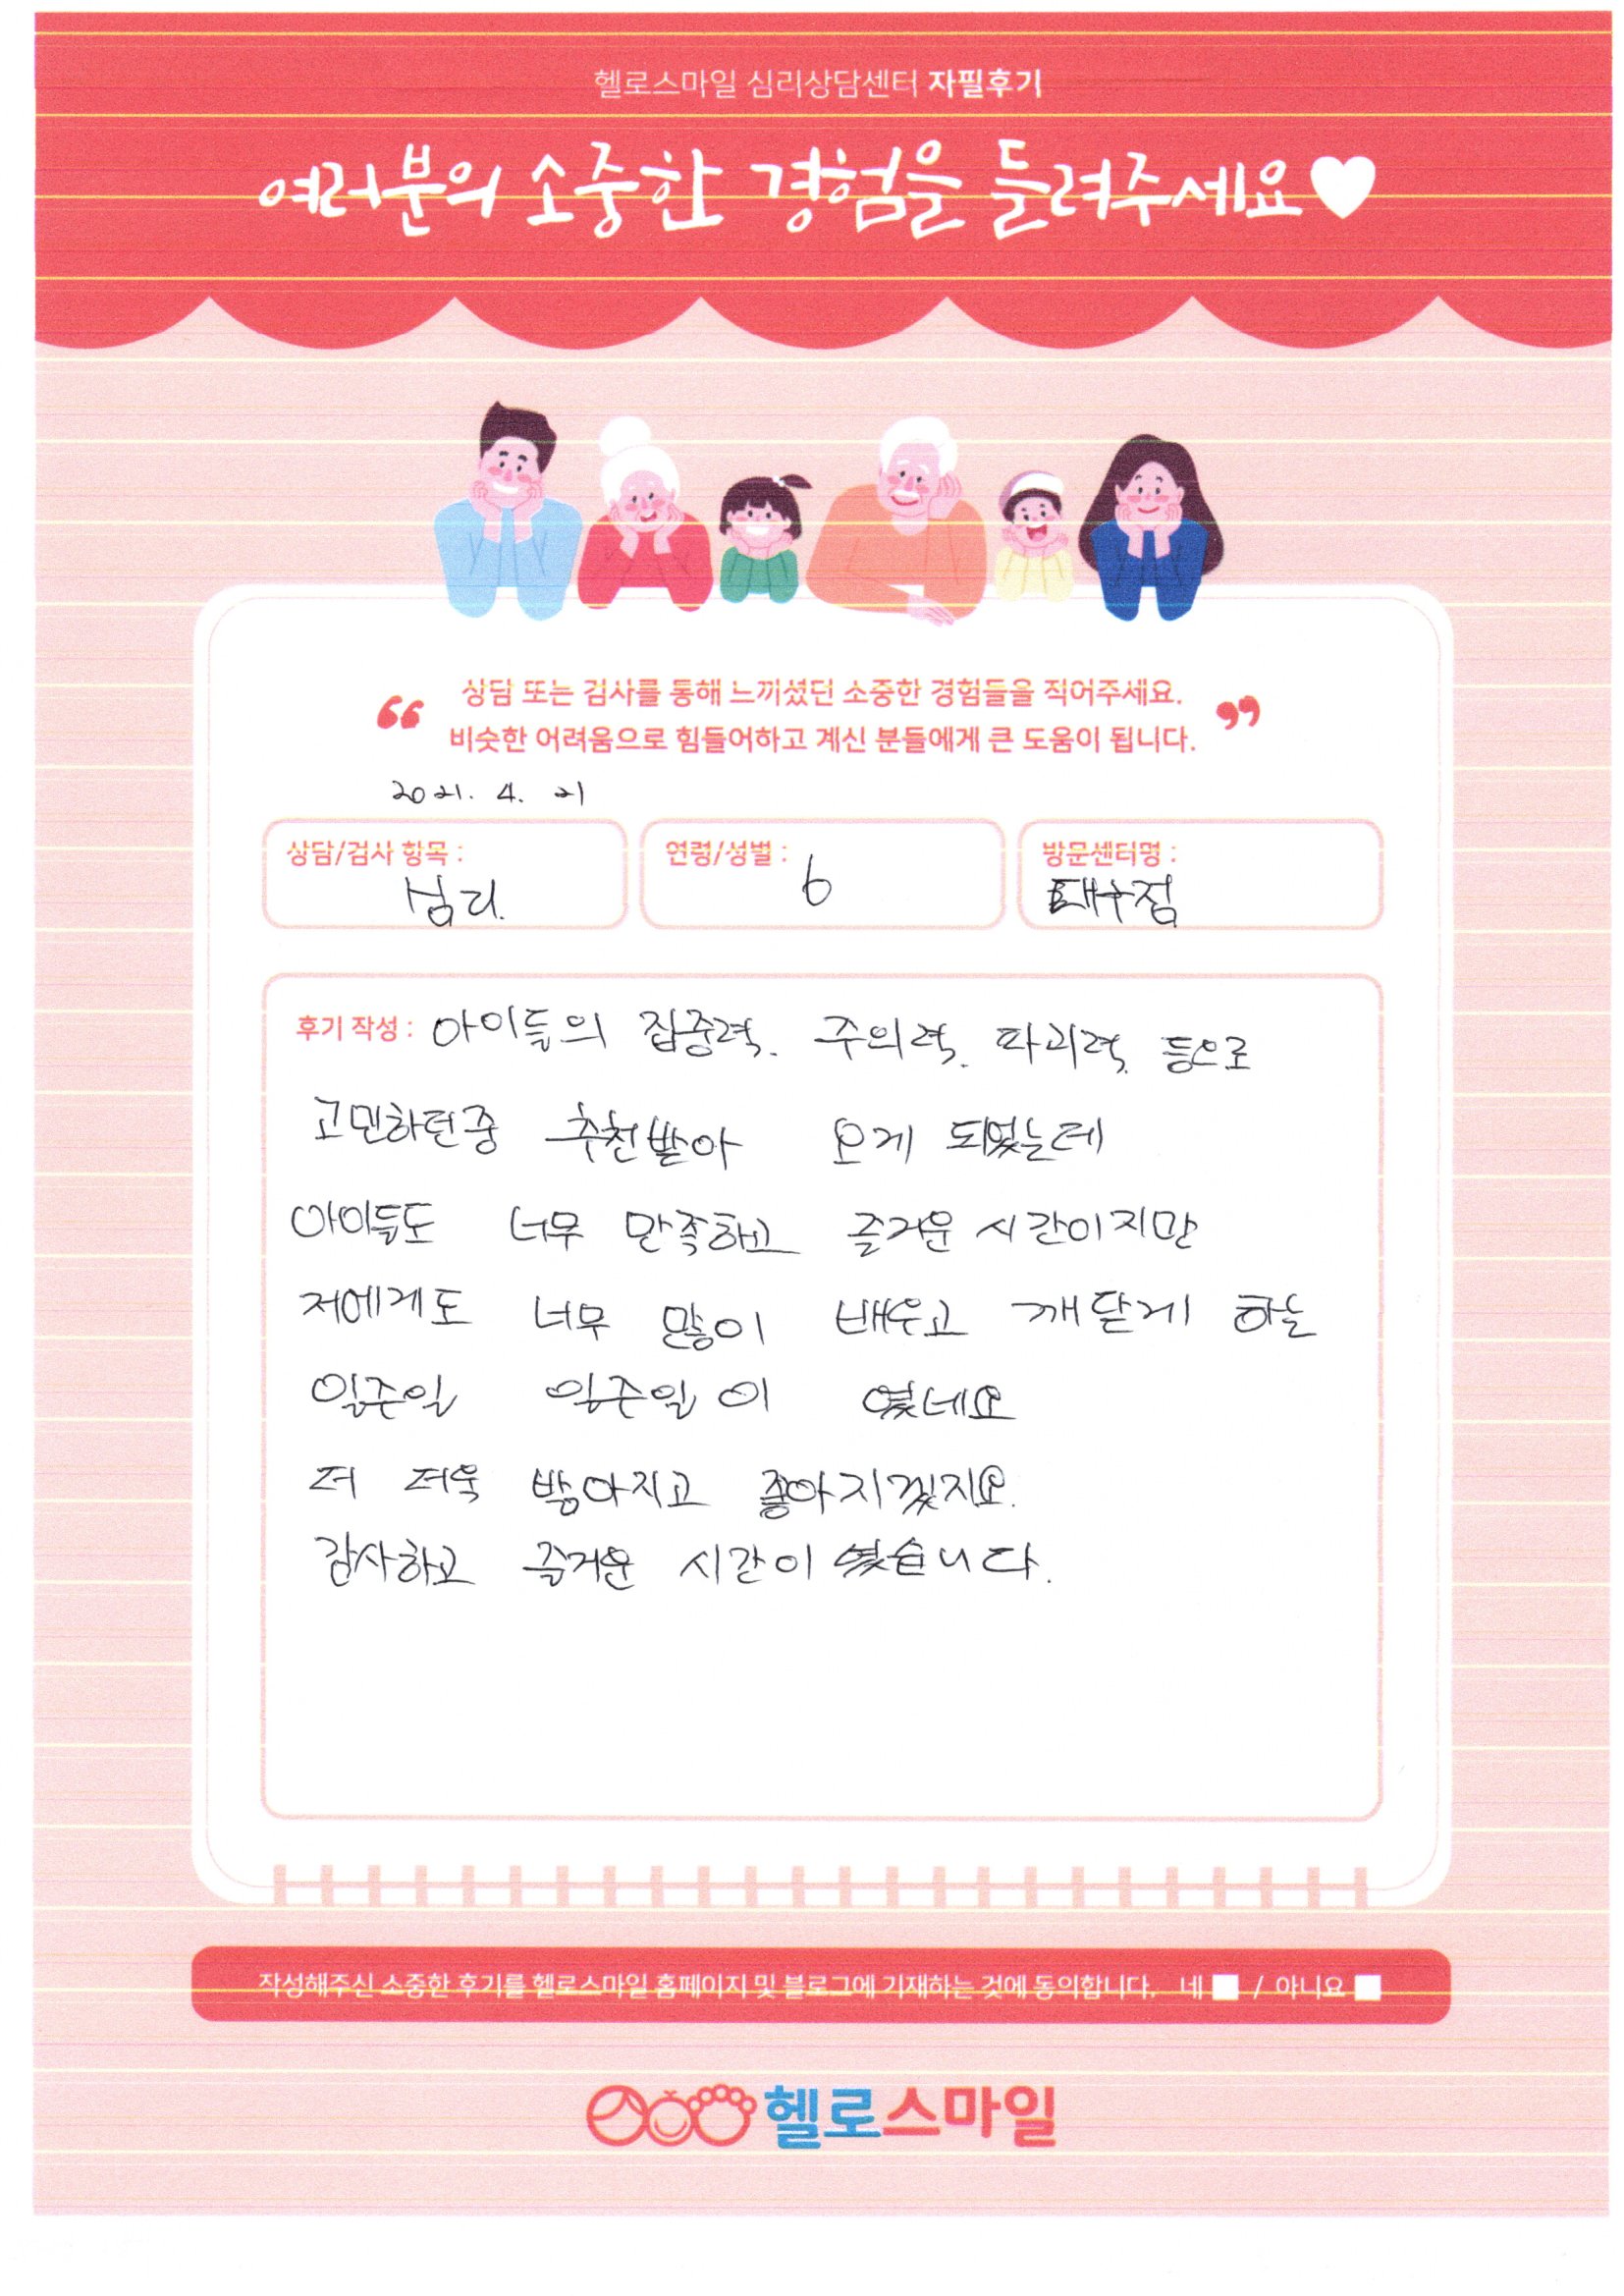 헬로스마일 심리상담센터 자필후기
여러분의 소중한 경험을 들려주세요
상담 또는 검사를 통해 느끼셨던 소중한 경험들을 적어주세요.
비슷한 어려움으로 힘들어하고 계신 분들에게 큰 도움이 됩니다.
2021. 4. 21
상담/검사 항목 : 심리.
연령/성별 : 6
방문센터명 :
후기 작성 : 아이들의 집중력. 주의력. 파괴력. 등으로
고민하던중 추천받아 오게 되었는데
아이들도 너무 만족하고 즐거운 시간이지만
저에게도 너무 많이 배우고 깨닫게 하는
일주일 일주일 이 였네요
더 더욱 밝아지고 좋아지겠지요.
감사하고 즐거운 시간이 였습니다.
작성해주신 소중한 후기를 헬로스마일 홈페이지 및 블로그에 기재하는 것에 동의합니다. 네 / 아니요
헬로스마일